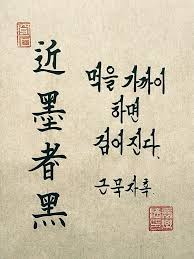 近墨者黑
먹을 가까이
하면
검어진다.
근묵자흑